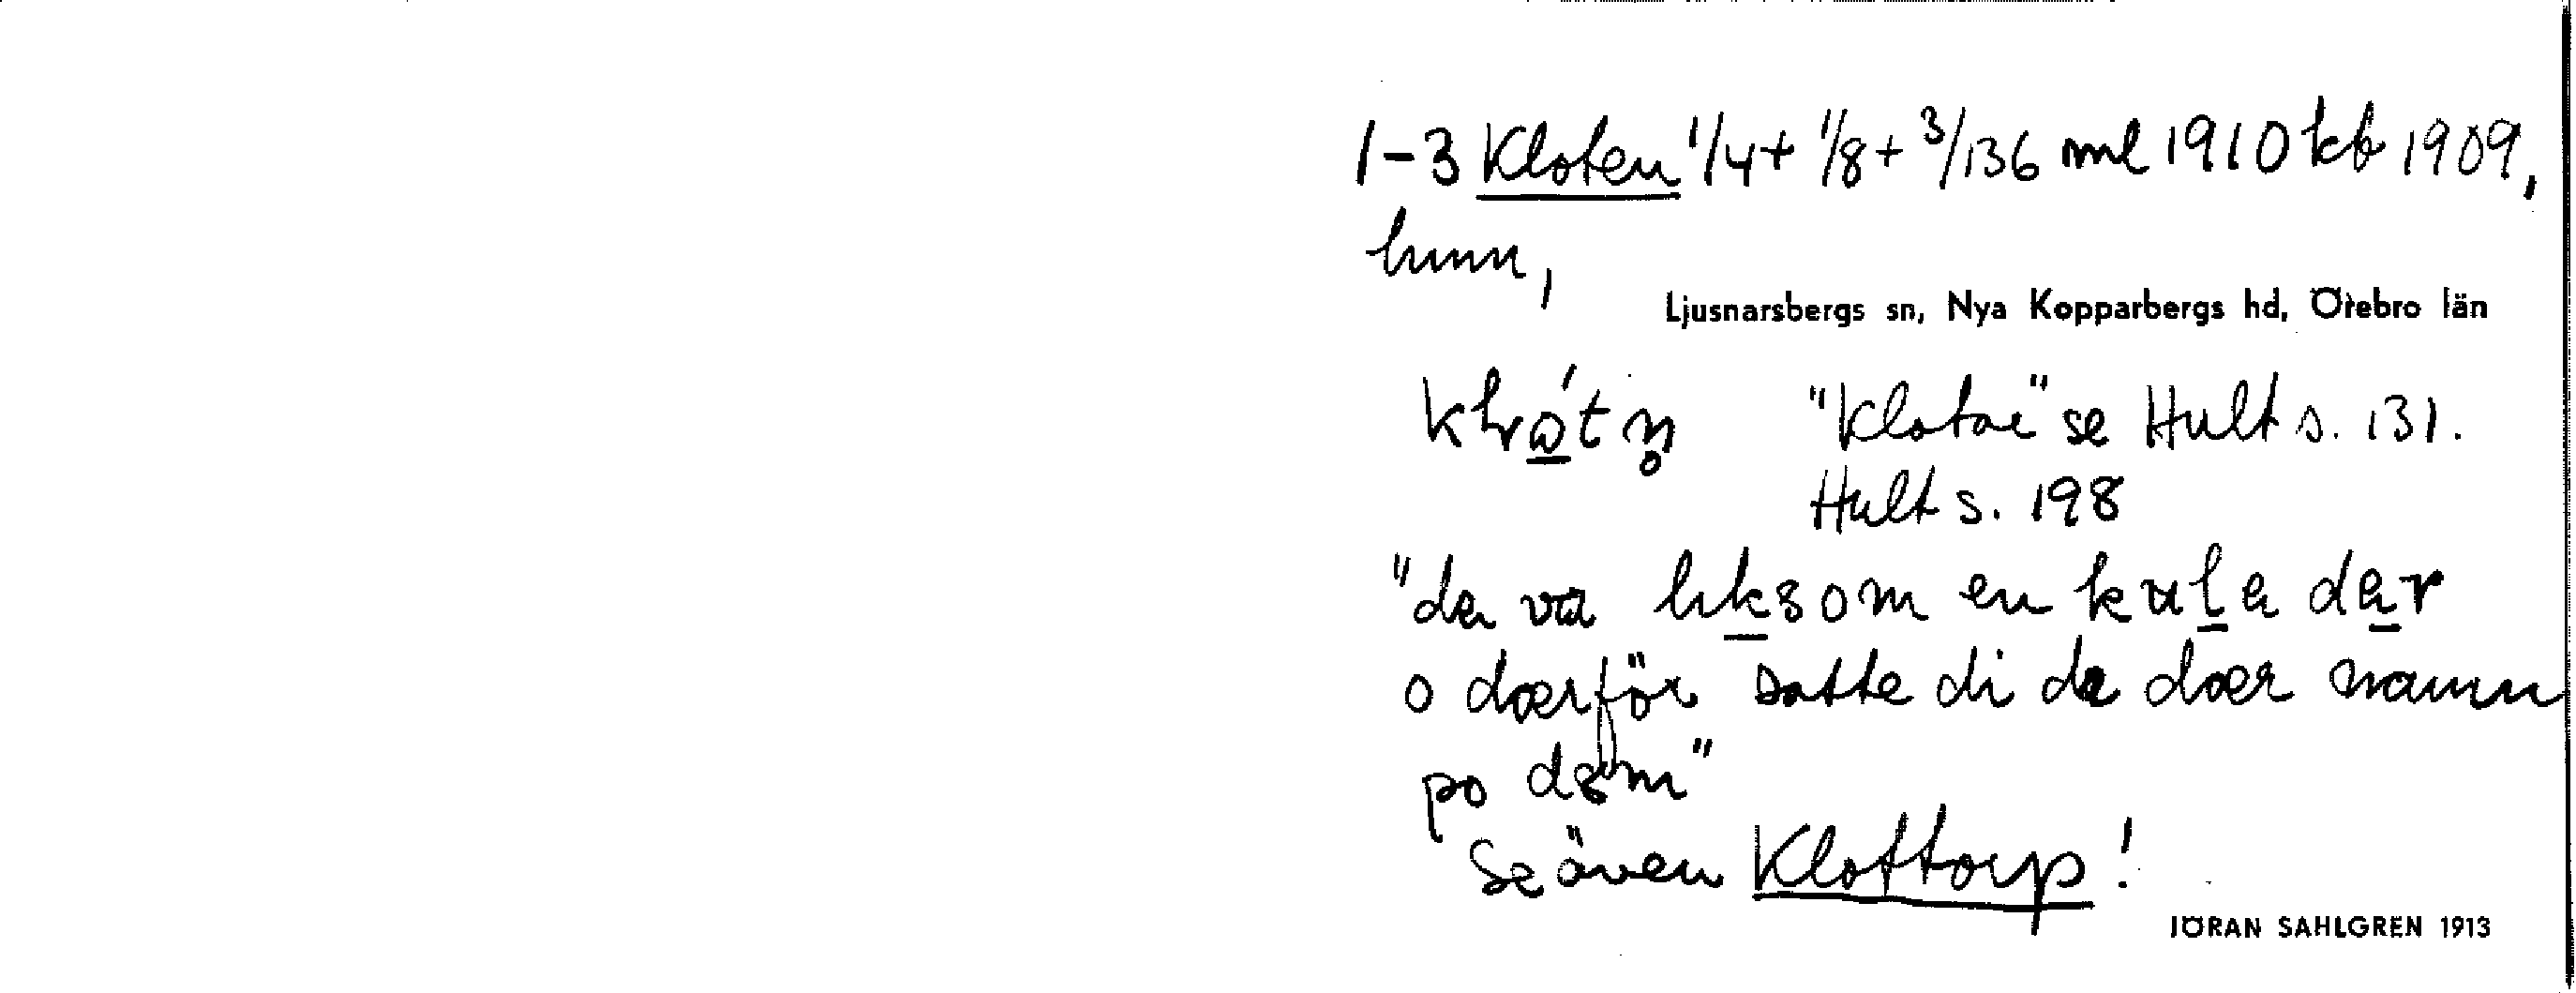 1-3 Kloten 1/4 + 1/8 + 3/136 ml 1910 kb 1909,
hmn,
Ljusnarsbergs sn, Nya Kopparbergs hd, Örebro län
"Klotar" se Hult s. 131.
Hult s. 198
"de va liksom en kula där
o därför satte di de där namn
po dem"
Se även Klottorp!
JÖRAN SAHLGREN 1913